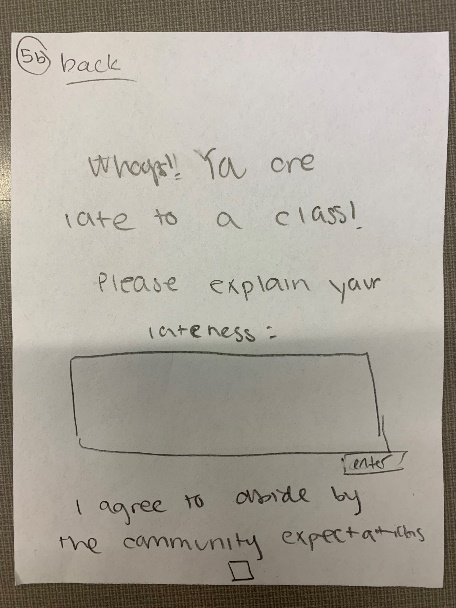 5b back
Whoops!! Ya are
late to a class!
Please explain your
lateness:
enter
I agree to abide by
the community expectations